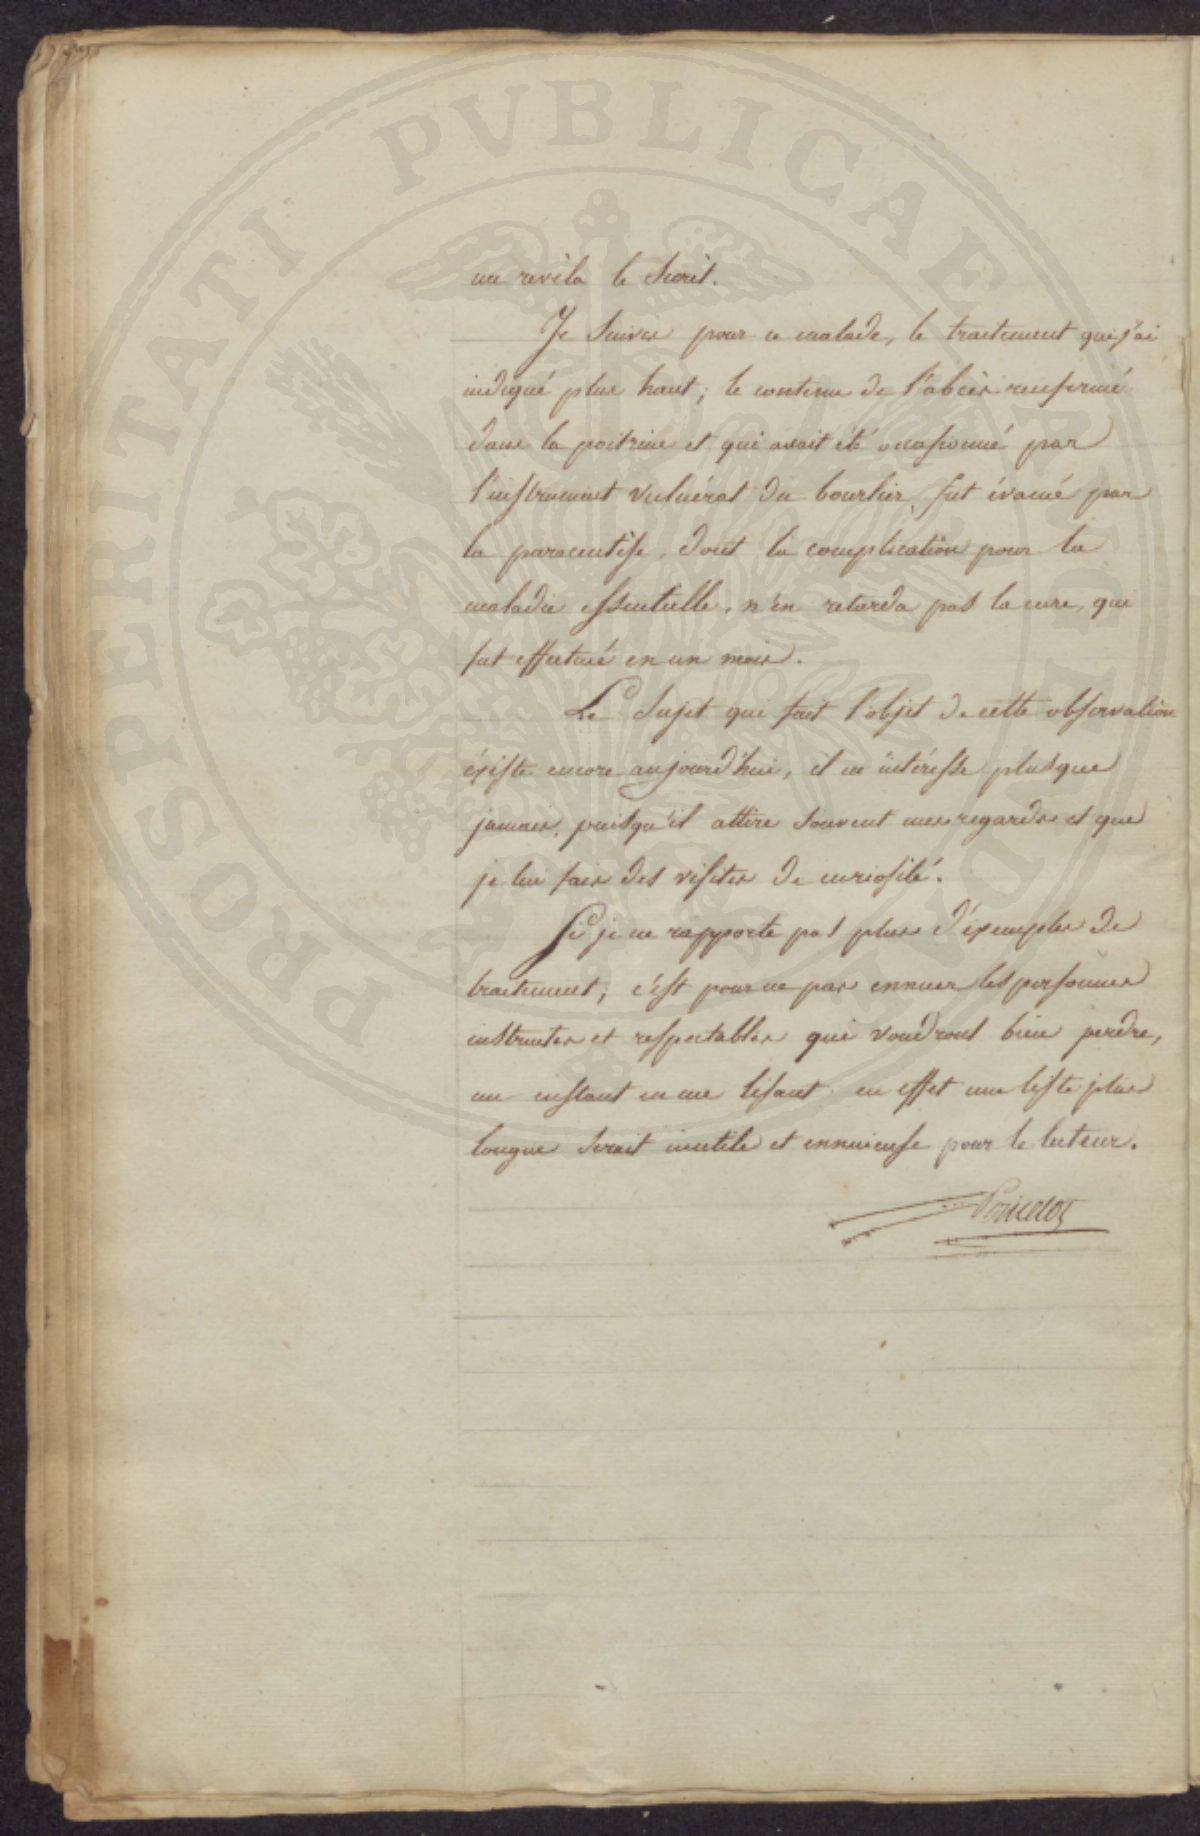 PROSPERITATI PVBLICAE
me revéla le Secrèt.
Je Suivis pour ce malade, le traitement que j'ai
indiqué plus haut; le contenu de l'abcès renfermé
dans la poitrine et qui avait été occasionné par
l'instrument vulnérat du bourlier, fut évacué par
la paracentèse, dont la complication pour la
maladie essentielle, n'en retarda pas la cure, qui
fut effectuée en un mois.
Le Sujet qui fait l'objet de cette observation
éxiste encore aujourd'hui, il m'intéresse plus que
jamais, puisqu'il attire Souvent mes regards et que
je lui fais des visites de curiosité.
Si je ne rapporte pas plus d'éxemples de
traitement, c'est pour ne pas ennuer les personnes
instruites et respectables qui voudront bien perdre,
un instant en me lisant en effet une liste plus
longue Serait inutile et ennuieuse pour le lecteur.